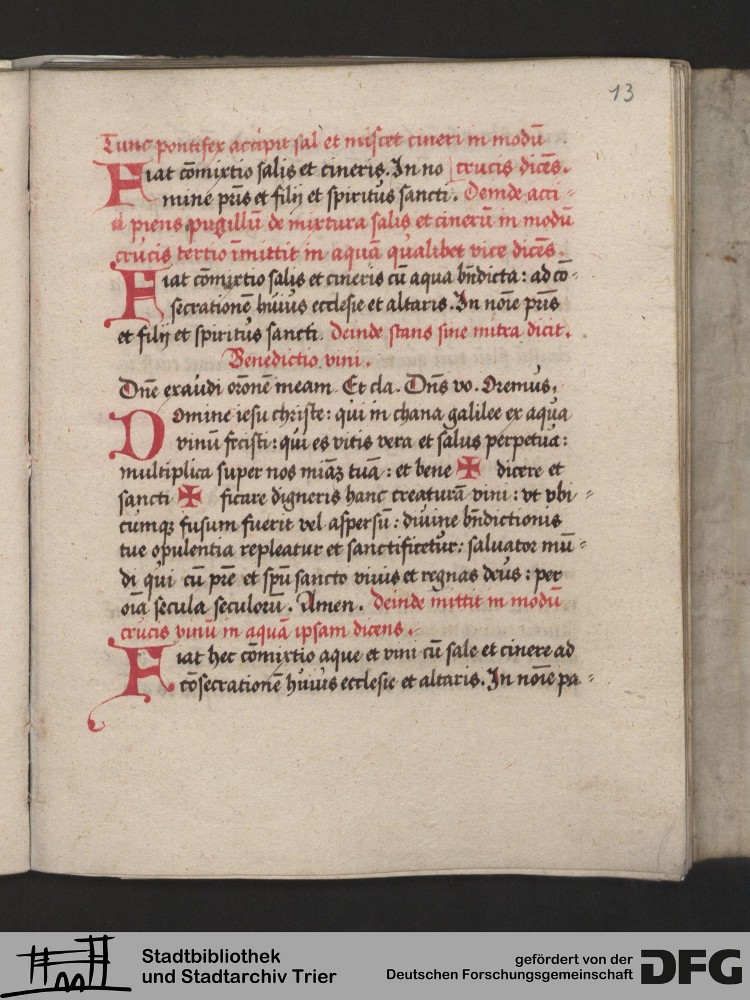 13
Tunc pontifex accipit sal et miscet cineri in modū
Fiat cōmixtio salis et cineris. In no crucis dicēs.
mine pr̄is et filij et spiritus sancti. Deinde acci-
piens pugillū de mixtura salis et cinerū in modū
crucis tertio īmittit in aquā qualibet vice dicēs.
Fiat cōmixtio salis et cineris cū aqua bn̄dicta: ad cō-
secrationē huius ecclesie et altaris. In noīe pr̄is
et filij et spiritus sancti. Deinde stans sine mitra dicit.
Benedictio vini.
Dn̄e exaudi orōnem meam. Et cla. Dn̄s vo. Oremus.
Domine iesu christe: qui in chana galilee ex aqua
vinū fecisti: qui es vitis vera et salus perpetua:
multiplica super nos miāȝ tuā: et bene ✠ dicere et
sancti ✠ ficare digneris hanc creaturā vini: vt vbi-
cumqȝ fusum fuerit vel aspersū: diuine bn̄dictionis
tue opulentia repleatur et sanctificetur: saluator mū-
di qui cū pr̄e et spū sancto viuis et regnas deus: per
oīa secula seculorū. Amen. Deinde mittit in modū
crucis vinū in aquā ipsam dicens.
Fiat hec cōmixtio aque et vini cū sale et cinere ad
cōsecrationē huius ecclesie et altaris. In noīe pa-
Stadtbibliothek
und Stadtarchiv Trier
gefördert von der
Deutschen Forschungsgemeinschaft
DFG